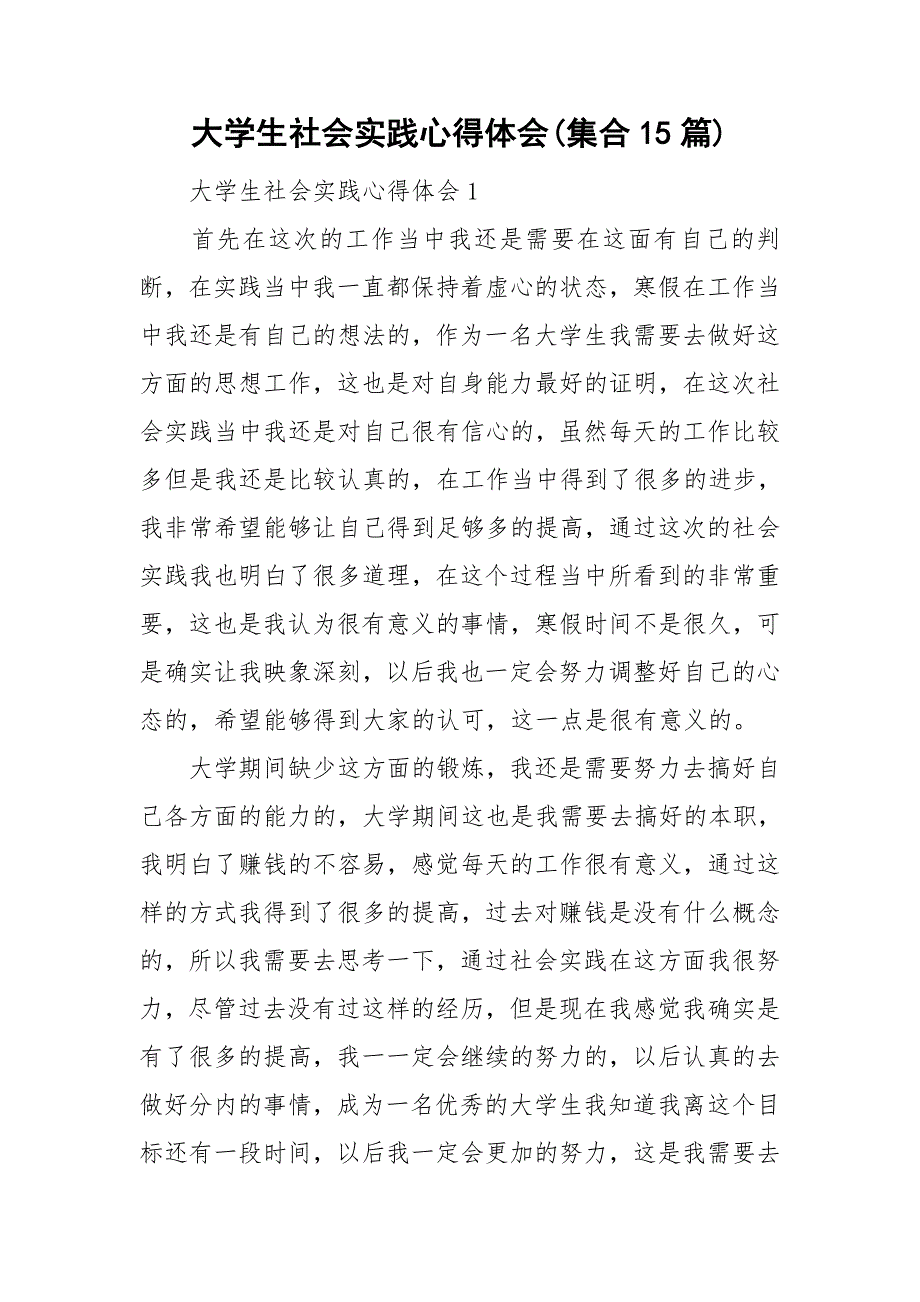 大学生社会实践心得体会(集合15篇)
大学生社会实践心得体会1
首先在这次的工作当中我还是需要在这面有自己的判
断，在实践当中我一直都保持着虚心的状态，寒假在工作当
中我还是有自己的想法的，作为一名大学生我需要去做好这
方面的思想工作，这也是对自身能力最好的证明，在这次社
会实践当中我还是对自己很有信心的，虽然每天的工作比较
多但是我还是比较认真的，在工作当中得到了很多的进步，
我非常希望能够让自己得到足够多的提高，通过这次的社会
实践我也明白了很多道理，在这个过程当中所看到的非常重
要，这也是我认为很有意义的事情，寒假时间不是很久，可
是确实让我映象深刻，以后我也一定会努力调整好自己的心
态的，希望能够得到大家的认可，这一点是很有意义的。
大学期间缺少这方面的锻炼，我还是需要努力去搞好自
己各方面的能力的，大学期间这也是我需要去搞好的本职，
我明白了赚钱的不容易，感觉每天的工作很有意义，通过这
样的方式我得到了很多的提高，过去对赚钱是没有什么概念
的，所以我需要去思考一下，通过社会实践在这方面我很努
力，尽管过去没有过这样的经历，但是现在我感觉我确实是
有了很多的提高，我一一定会继续的努力的，以后认真的去
做好分内的事情，成为一名优秀的大学生我知道我离这个目
标还有一段时间，以后我一定会更加的努力，这是我需要去